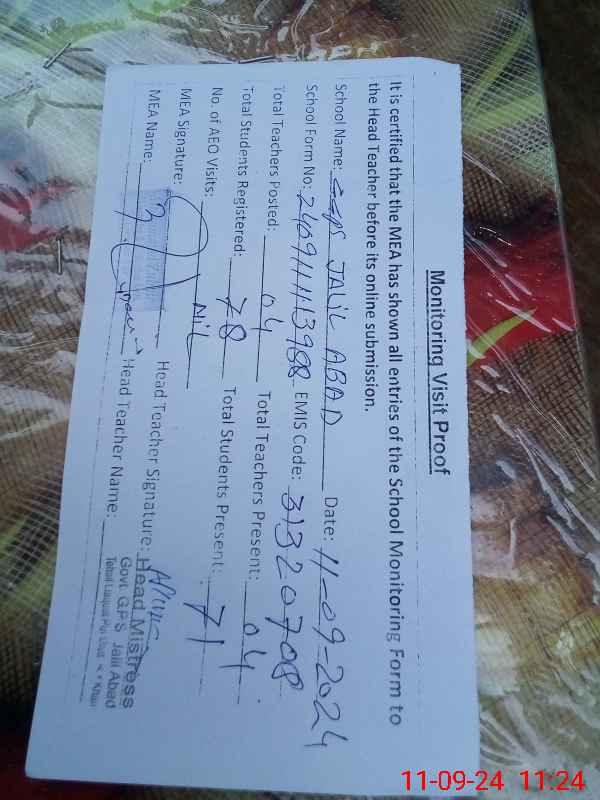 Monitoring Visit Proof
It is certified that the MEA has shown all entries of the School Monitoring Form to
the Head Teacher before its online submission.
School Name: GGPS JALIL ABAD Date: 11-09-2024
School Form No: 2409111113988 EMIS Code: 31320708
Total Teachers Posted: 04 Total Teachers Present: 04
Total Students Registered: 78 Total Students Present: 71
No. of AEO Visits: NiL
MEA Signature: Head Teacher Signature:
MEA Name: Head Teacher Name:
Head Mistress
Govt. G.P.S Jalil Abad
Tehsil Liaquat Pur Khan
11-09-24 11:24